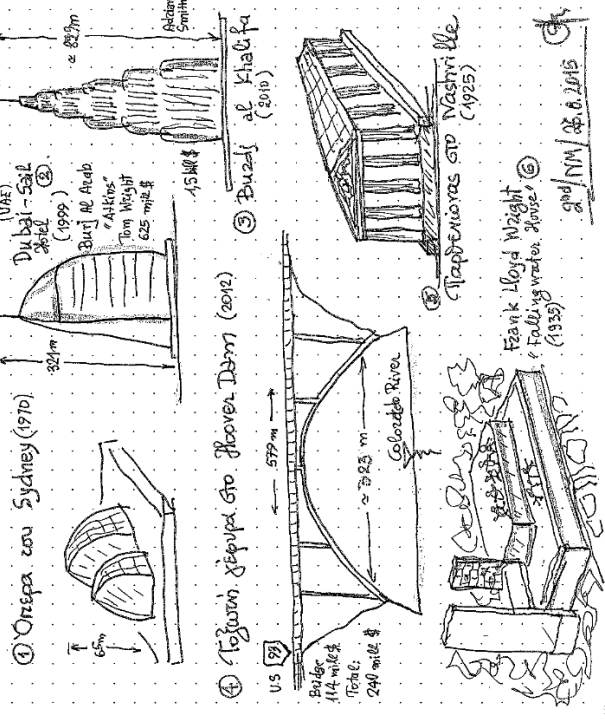 ① Όπερα του Sydney (1970)
65m
(UAE)
Dubai-Sail
Hotel ②
(1999)
Burj Al Arab
"Atkins"
Tom Wright
625 mill $
321m
≈ 829m
Adrian
Smith
1,5 bill $
③ Burdj al Khalifa
(2010)
④ Τοξωτή γέφυρα στο Hoover Dam (2012)
U.S 93
579 m
≈ 323 m
Colorado River
Bridge
114 mill $
Total:
240 mill $
⑤ Παρθενώνας στο Nashville
(1925)
Frank Lloyd Wright
"Fallingwater House" ⑥
(1935)